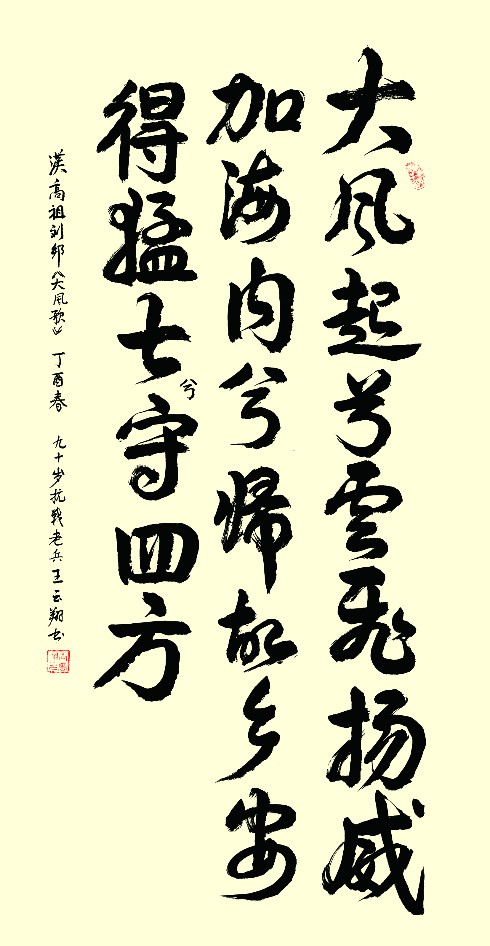 大风起兮雲飛扬威
加海内兮歸故乡安
得猛士兮守四方
漢高祖刘邦《大风歌》 丁酉春 九十岁抗战老兵王云翔书